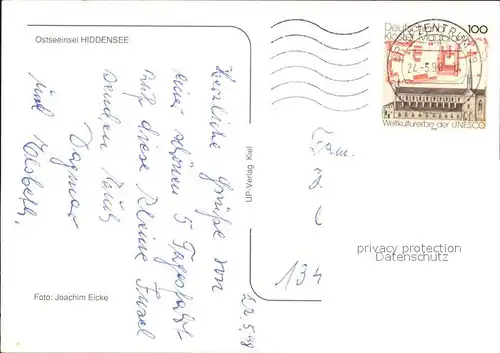 Ostseeinsel HIDDENSEE
Herzliche Grüße von
einer schönen 5 Tagesfahrt
auf diese kleine Insel
senden Euch
Dagmar
und Elsbeth.
22.5.98
Foto: Joachim Eicke
UP-Verlag Kiel
Deutschland
100
Kloster Maulbronn
BRIEFZENTRUM 18
24-5.98
Weltkulturerbe der UNESCO
Fam.
J.
134
privacy protection
Datenschutz